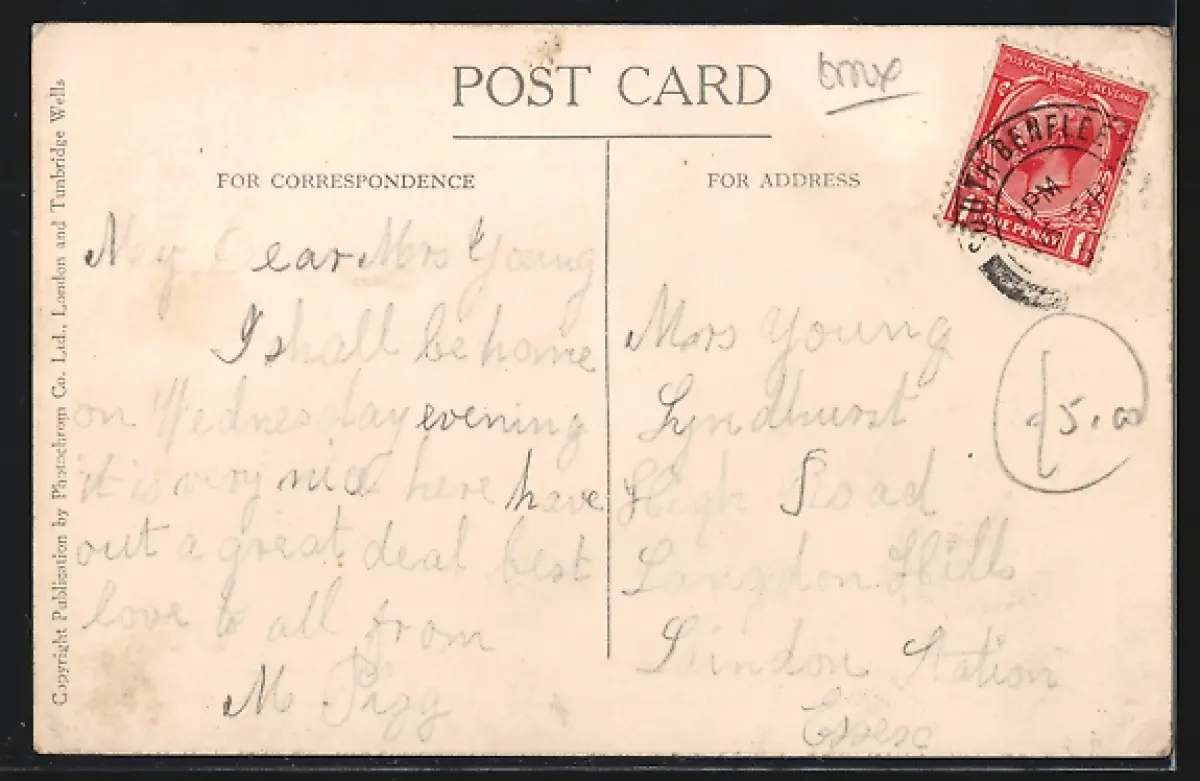 POST CARD
bmx
FOR CORRESPONDENCE
FOR ADDRESS
Copyright Publication by Photochrom Co. Ltd., London and Tunbridge Wells
POSTAGE REVENUE
ONE PENNY
SOUTH BENFLEET
PM
My Dear Mrs Young
I shall be home
on Wednesday evening
it is very nice here have
out a great deal best
love to all from
M Pigg
Mrs Young
Lyndhurst
High Road
Langdon Hills
Laindon Station
Essex
£5.00